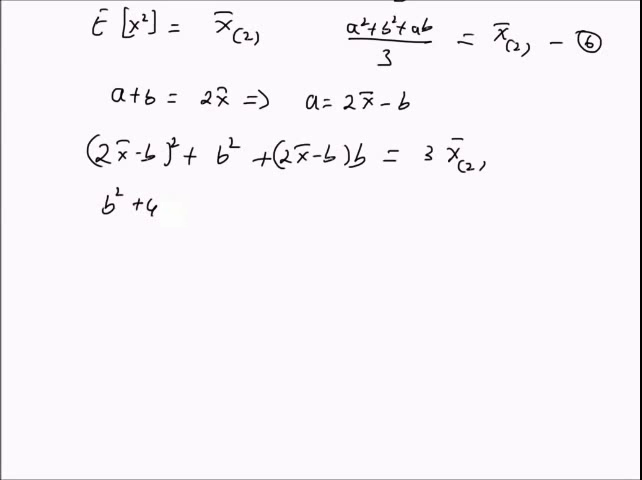 E[x²] = x̄₍₂₎   (a²+b²+ab)/3 = x̄₍₂₎ – ⑥
a+b = 2x̄ => a = 2x̄ – b
(2x̄-b)² + b² + (2x̄-b)b = 3 x̄₍₂₎
b² + 4